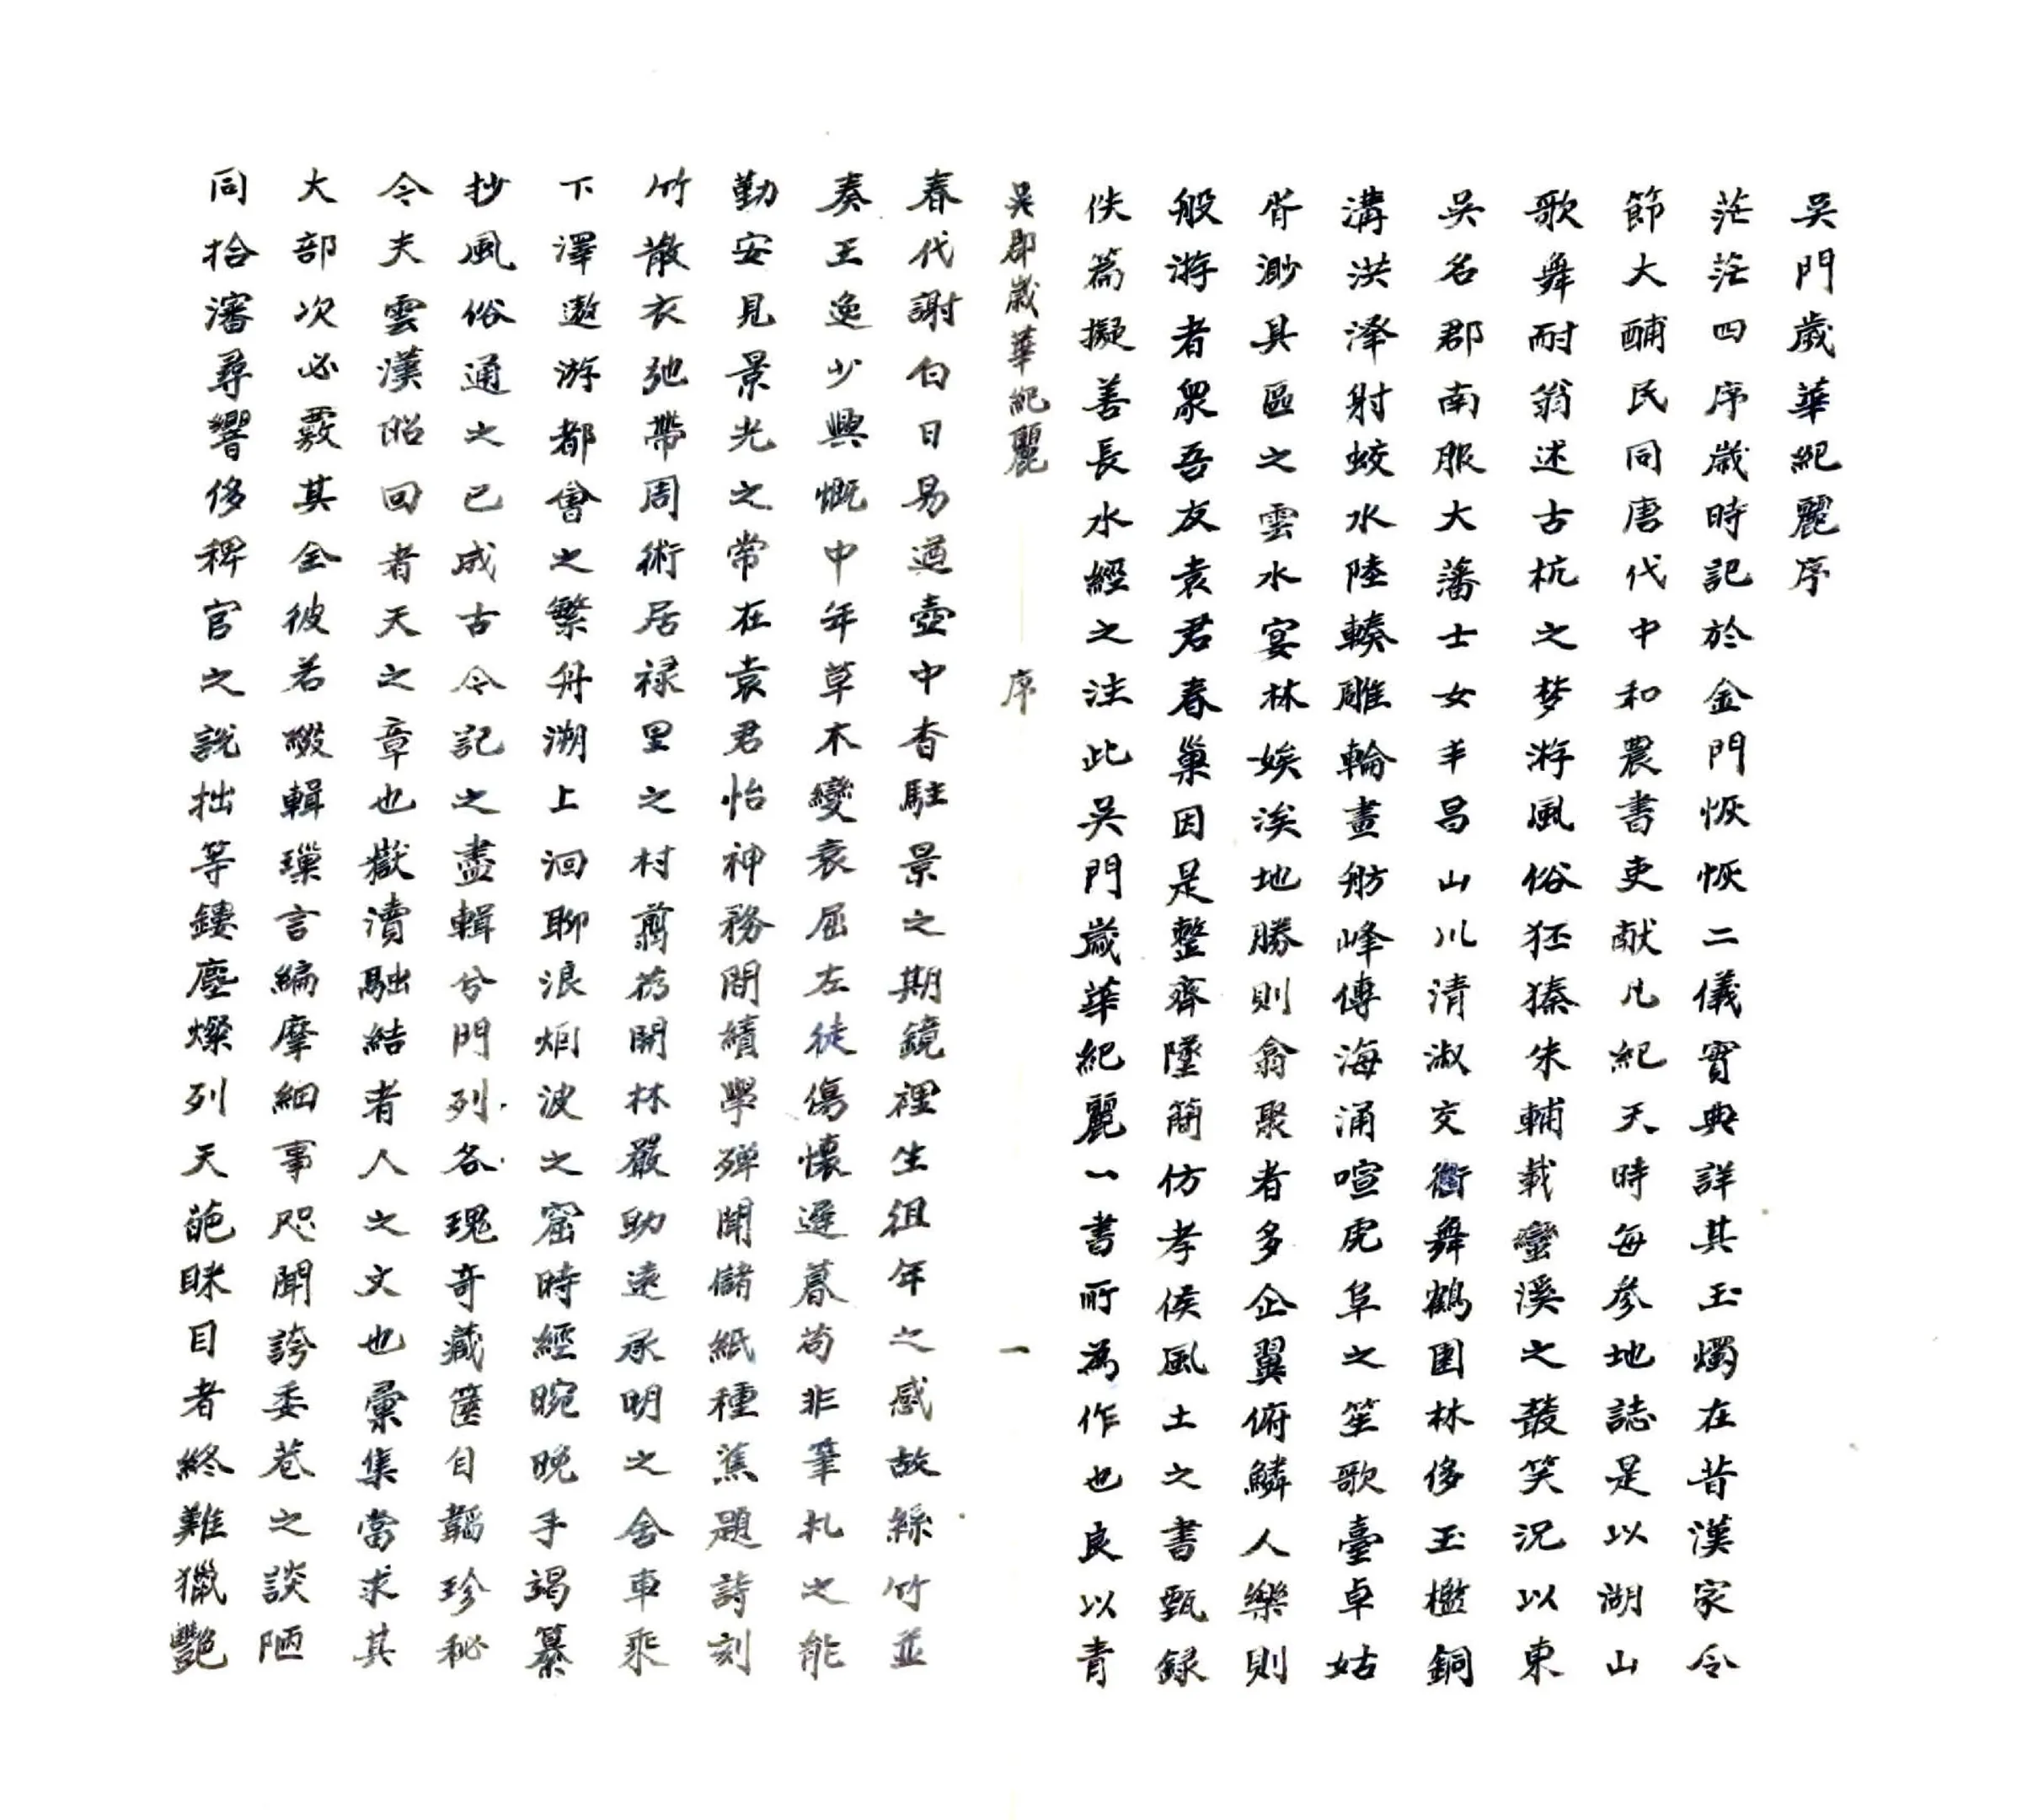 吴門歲華紀麗序
茫茫四序歲時記於金門恢恢二儀寳典詳其玉燭在昔漢家令
節大酺民同唐代中和農書吏献凡紀天時每參地誌是以湖山
歌舞耐翁述古杭之梦游風俗狉獉朱輔載蠻溪之叢笑況以東
吴名郡南服大藩士女丰昌山川清淑交衢舞鶴園林侈玉檻銅
溝洪泽射蛟水陸轃雕輪畫舫峰傳海涌喧虎阜之笙歌臺卓姑
胥渺具區之雲水宴林娭涘地勝則翕聚者多企翼俯鱗人樂則
般游者衆吾友袁君春巢因是整齊墜簡仿孝侯風土之書甄録
佚篇擬善長水經之注此吴門歲華紀麗一書所為作也良以青
吴郡歲華紀麗 序 一
春代謝白日易遒壺中杳駐景之期鏡裡生徂年之感故絲竹並
奏王逸少興慨中年草木變衰屈左徒傷懷遲暮苟非筆札之能
勤安見景光之常在袁君怡神務閒績學殫聞儲紙種蕉題詩刻
竹散衣弛帶周術居禄里之村翦茘開林嚴助遠承明之舍車乘
下澤遨游都會之繁舟溯上洄聊浪烟波之窟時經晼晚手竭纂
抄風俗通之已成古今記之盡輯分門列各瑰奇藏篋自韜珍秘
今夫雲漢昭回者天之章也嶽瀆融結者人之文也彙集當求其
大部次必覈其全彼若掇輯璅言編摩細事咫聞誇委巷之談陋
同拾瀋尋響侈稗官之說拙等鏤塵燦列天葩眯目者終難獵艷